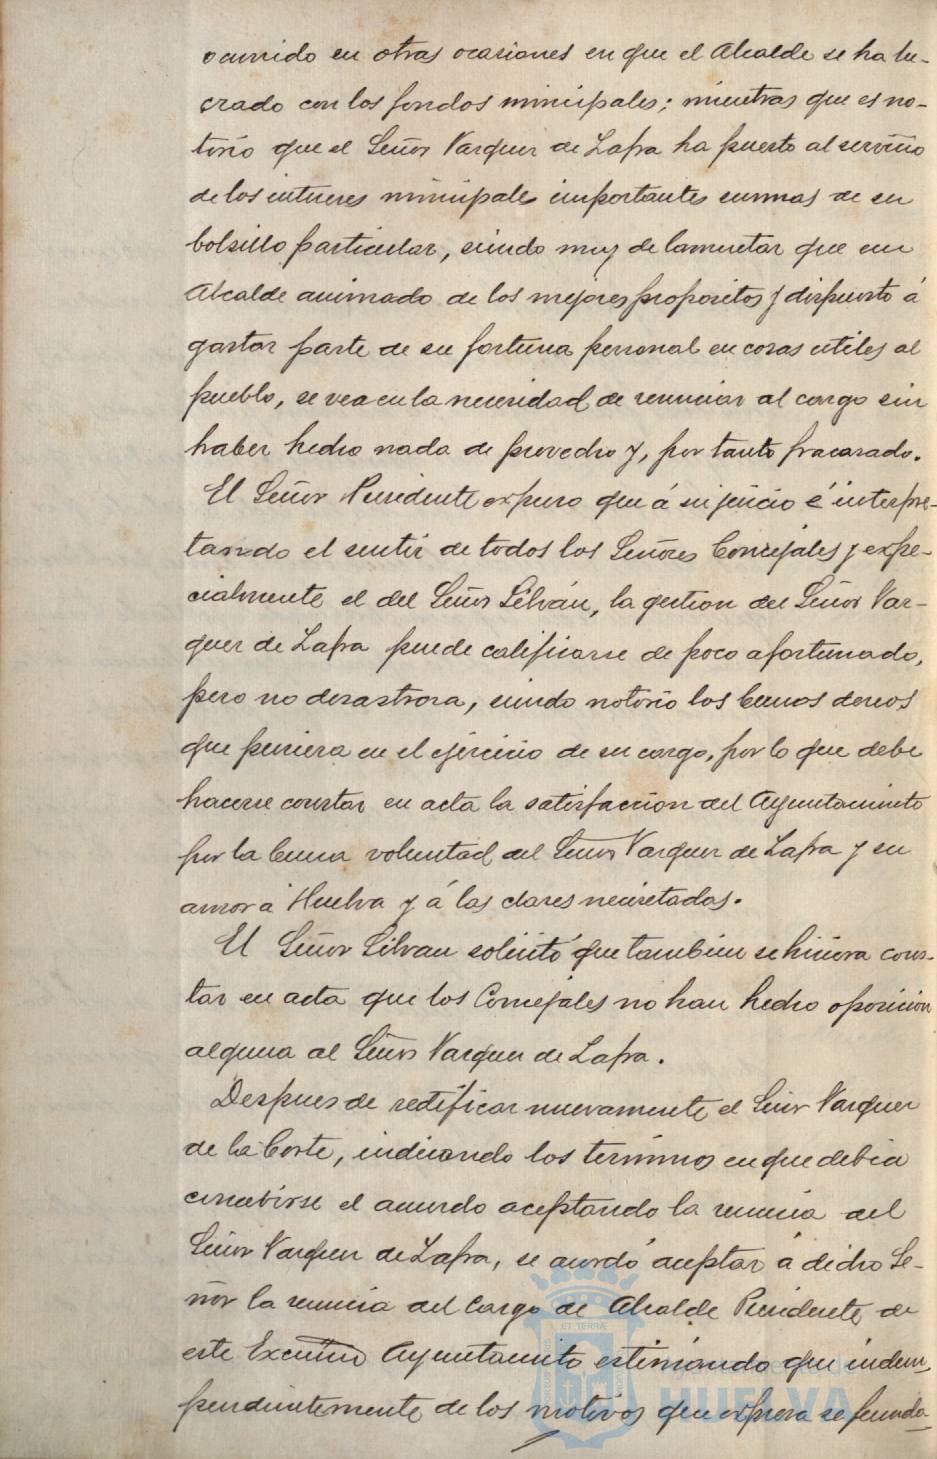 ocurrido en otras ocasiones en que el Alcalde se ha lu-
crado con los fondos municipales; mientras que es no-
torio que el Señor Vazquez de Zafra ha puesto al servicio
de los intereses municipales importantes sumas de su
bolsillo particular, siendo muy de lamentar que un
Alcalde animado de los mejores propositos y dispuesto á
gastar parte de su fortuna personal en cosas utiles al
pueblo, se vea en la necesidad de renunciar al cargo sin
haber hecho nada de provecho y, por tanto fracasado.
El Señor Presidente expuso que á su juicio é interpre-
tando el sentir de todos los Señores Concejales y espe-
cialmente el del Señor Silván, la gestion del Señor Vaz-
quez de Zafra puede calificarse de poco afortunado,
pero no desastrosa, siendo notorio los buenos deseos
que pusiera en el ejercicio de su cargo, por lo que debe
hacerse constar en acta la satisfaccion del Ayuntamiento
por la buena voluntad del Señor Vazquez de Zafra y su
amor á Huelva y á las clases necesitadas.
El Señor Silvan solicitó que tambien se hiciera cons-
tar en acta que los Concejales no han hecho oposicion
alguna al Señor Vazquez de Zafra.
Despues de rectificar nuevamente el Señor Vazquez
de la Corte, indicando los terminos en que debia
concebirse el acuerdo aceptando la renuncia del
Señor Vazquez de Zafra, se acordó aceptar á dicho Se-
ñor la renuncia del cargo de Alcalde Presidente de
este Excmo Ayuntamiento estimando que inden-
pendientemente de los motivos que expresa se funda-
ET TERRÆ
Ayuntamiento de
HUELVA